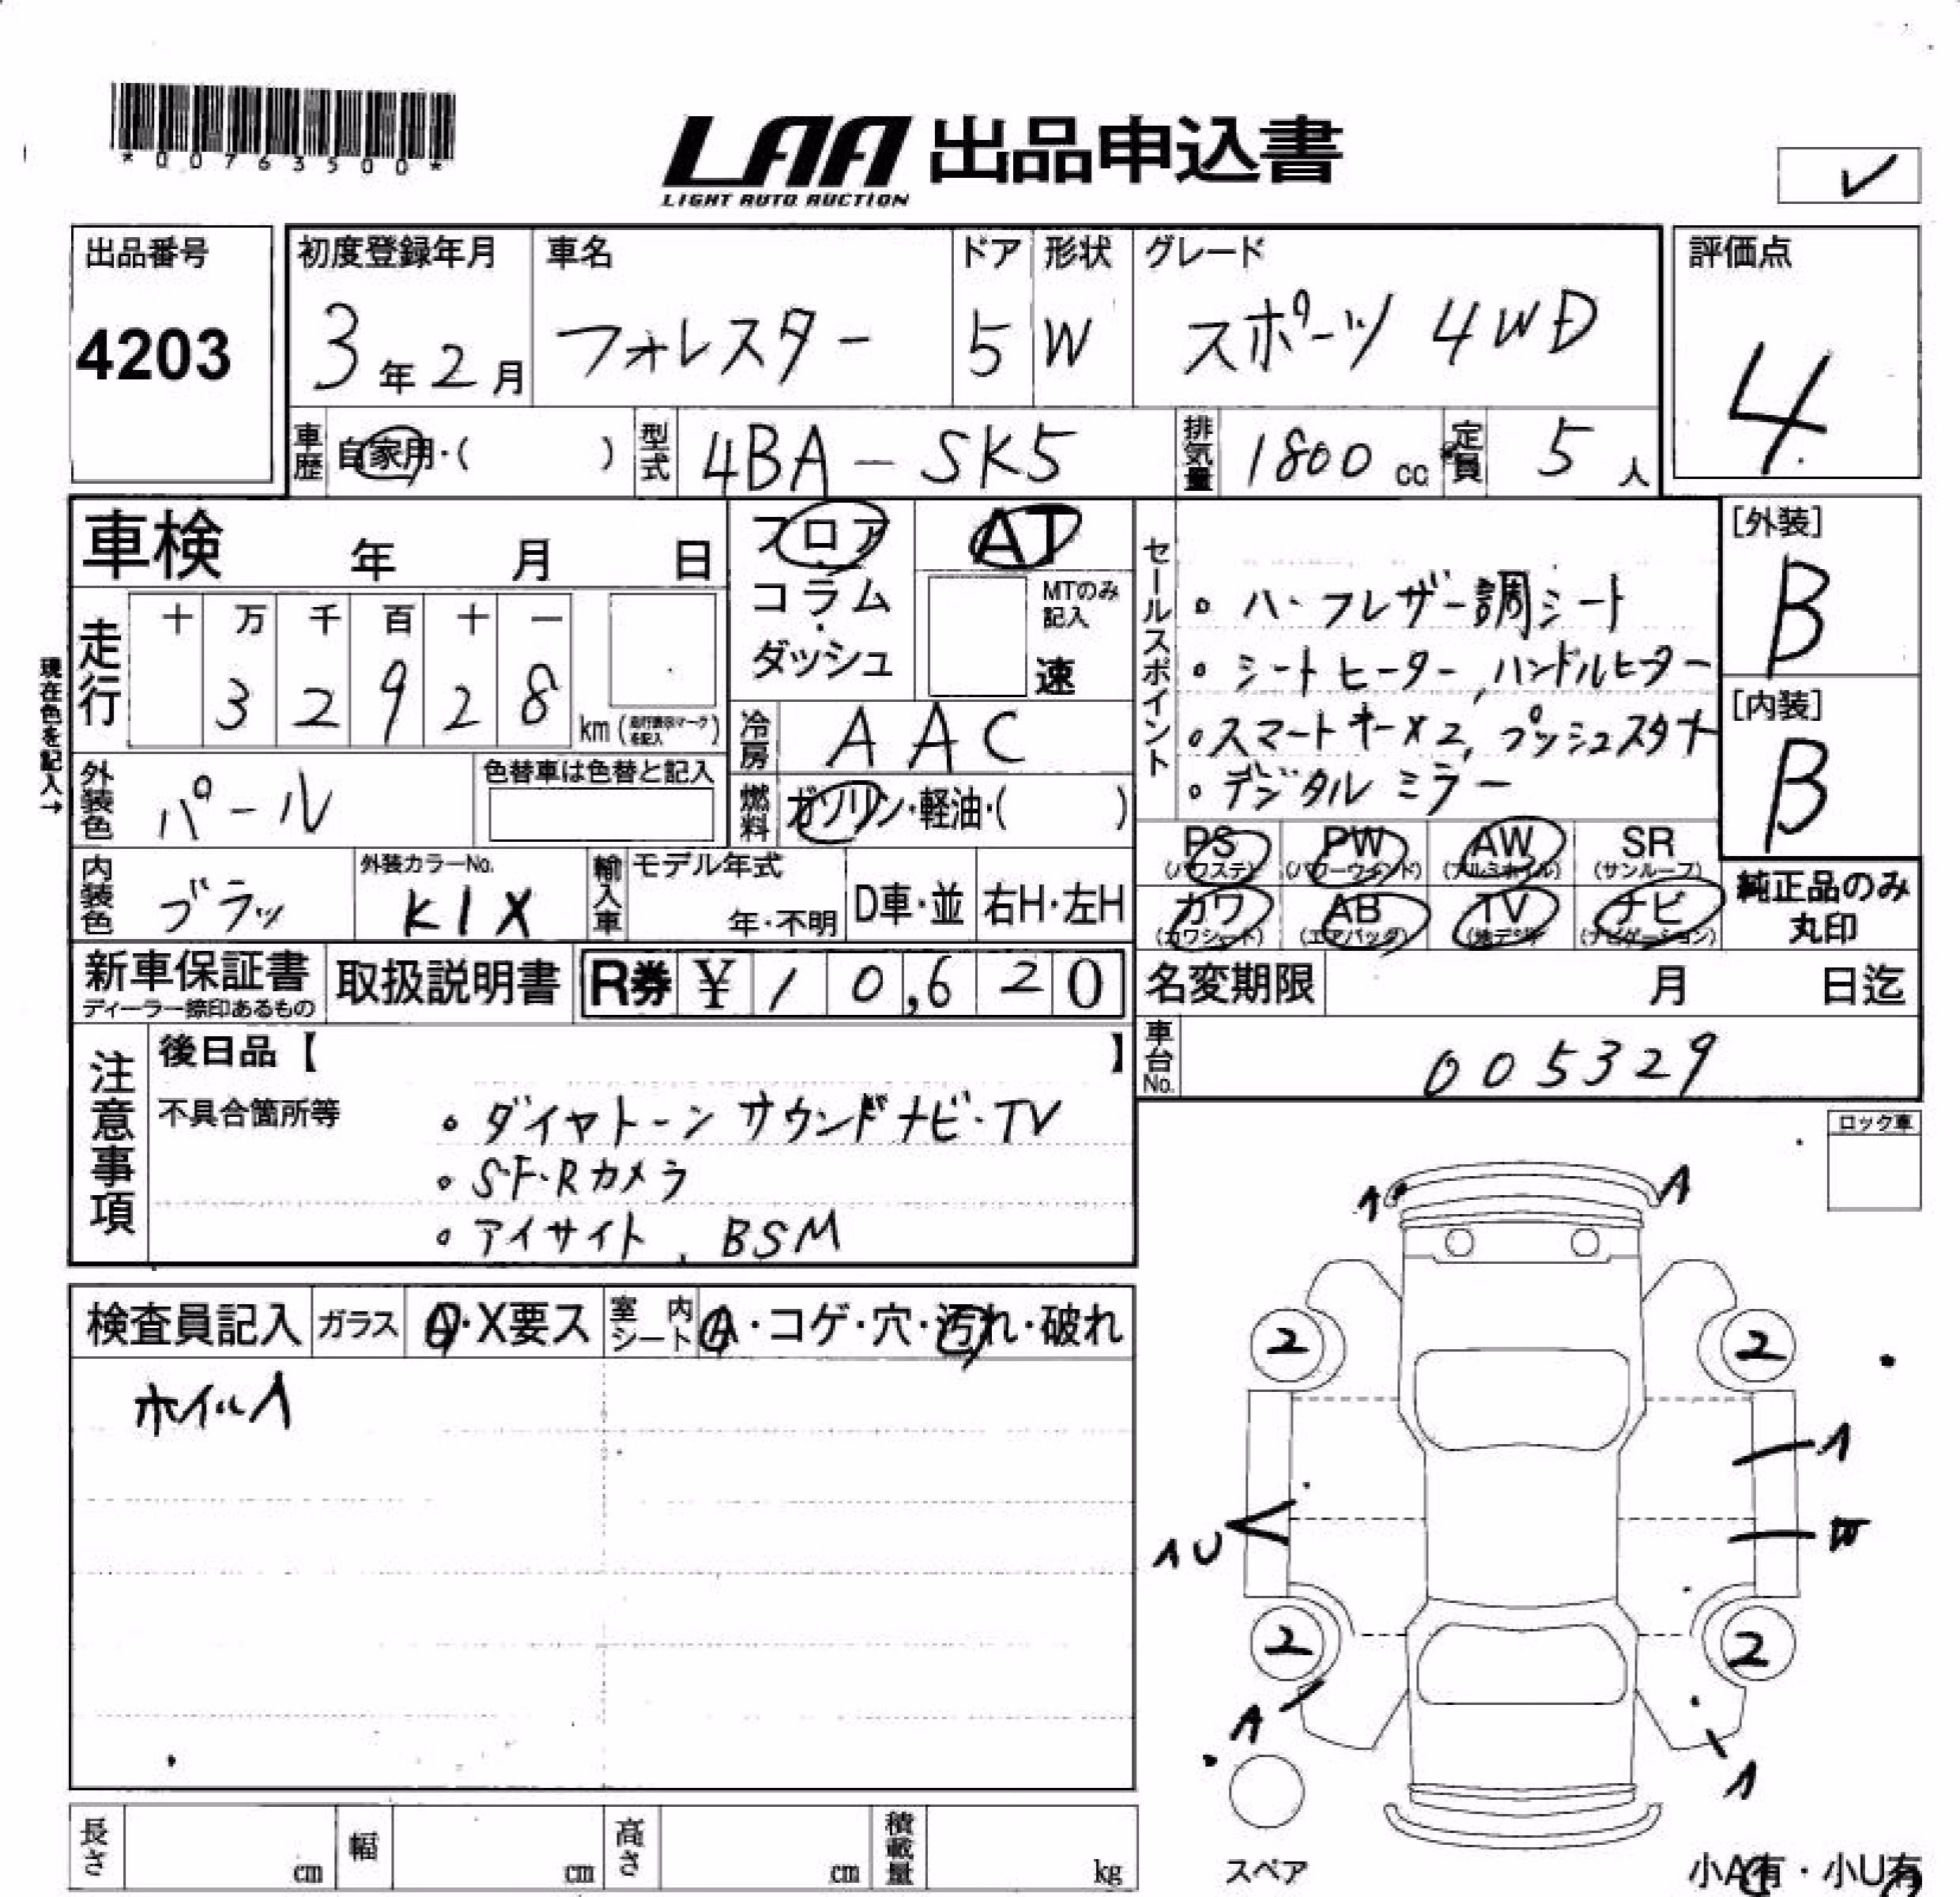 *00763500*
LAA 出品申込書
LIGHT AUTO AUCTION
✓
出品番号
4203
初度登録年月
3年2月
車名
フォレスター
ドア
5
形状
W
グレード
スポーツ 4WD
評価点
4
車歴
自家用・( )
型式
4BA-SK5
排気量
1800 cc
定員
5 人
車検 年 月 日
フロア
コラム
ダッシュ
AT
MTのみ記入
速
セールスポイント
。ハーフレザー調シート
。シートヒーター, ハンドルヒーター
。スマートキー×2, プッシュスタート
。デジタルミラー
[外装]
B
[内装]
B
現在色を記入→
走行
十 万 千 百 十 一
3 2 9 2 8
km (走行表示マークを記入)
冷房
AAC
外装色
パール
色替車は色替と記入
燃料
ガソリン・軽油・( )
PS (パワステ)
PW (パワーウィンド)
AW (アルミホイル)
SR (サンルーフ)
カワ (カワシート)
AB (エアバッグ)
TV (地デジ)
ナビ (ナビゲーション)
純正品のみ
丸印
内装色
ブラッ
外装カラーNo.
K1X
輸入車
モデル年式
年・不明
D車・並
右H・左H
新車保証書
ディーラー捺印あるもの
取扱説明書
R券 ¥ 10,620
名変期限 月 日迄
車台No.
005329
注意事項
後日品【 】
不具合箇所等
。ダイヤトーン サウンドナビ・TV
。SF・Rカメラ
。アイサイト, BSM
ロック車
検査員記入
ガラス
A・X要ス
室内シート
A・コゲ・穴・汚れ・破れ
ホイルA
A A
2 2
A
AU W
2 2
A A
スペア
長さ cm
幅 cm
高さ cm
積載量 kg
小A有・小U有